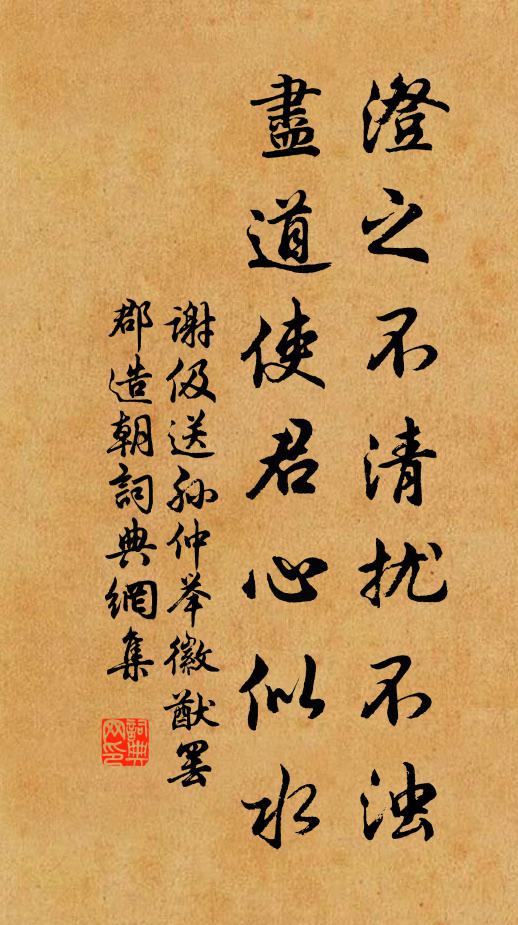 澄之不清扰不浊
盡道使君心似水
谢伋送孙仲举徽猷罢
郡造朝詞典網集
詞典网印